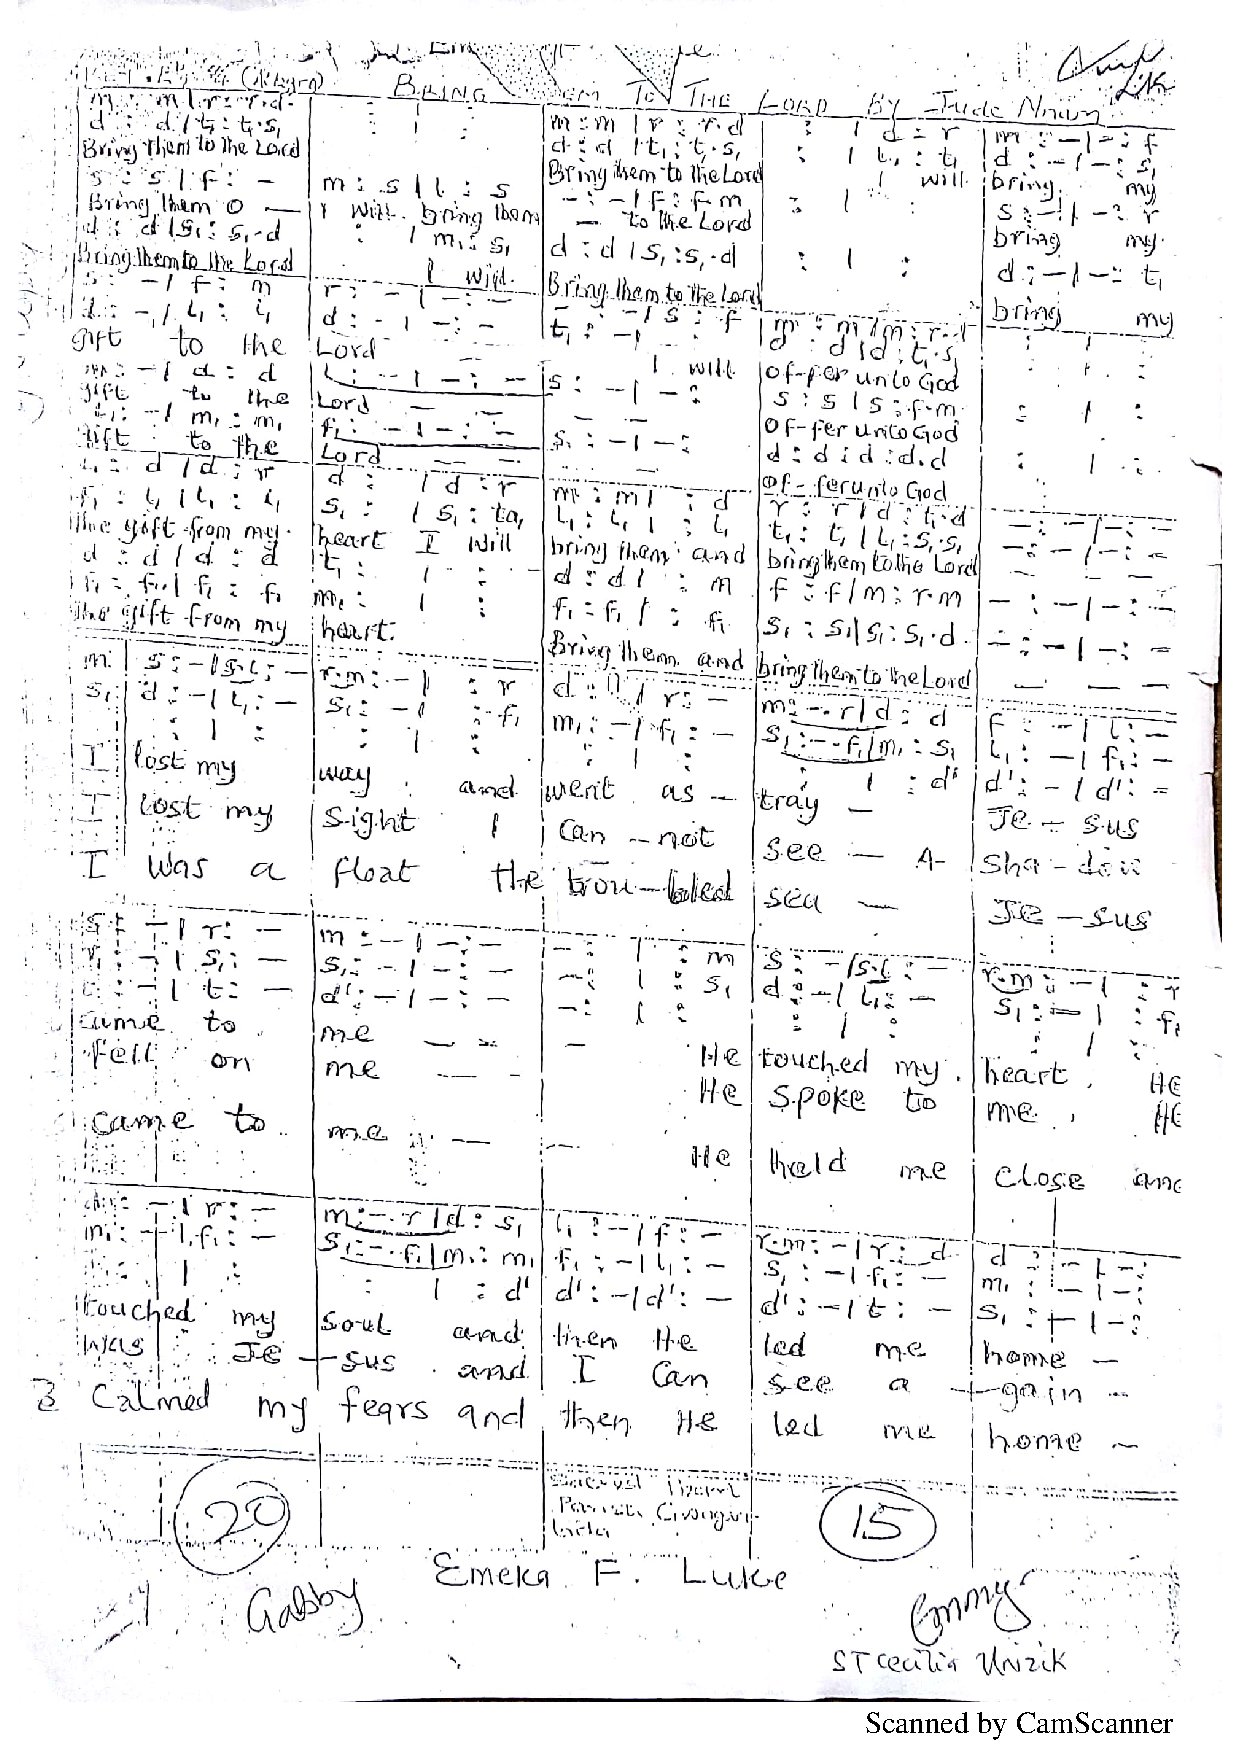 BRING THEM TO THE LORD BY Jude Nnam
m : m | r : r.d
d : d | t₁ : t₁.s₁
Bring them to the Lord
s : s | f : —
Bring them O —
d : d | s₁ : s₁.d
Bring them to the Lord
m : s | l : s
I will bring them
: | m₁ : s₁
I will
m : m | r : r.d
d : d | t₁ : t₁.s₁
Bring them to the Lord
— : — | f : f m
— to the Lord
d : d | s₁ : s₁.d
Bring them to the Lord
: | d : r
: | l₁ : t₁
I will
: | :
: | :
m : — | — : f
d : — | — : s₁
bring my
s : — | — : r
bring my
d : — | — : t₁
bring my
s : — | f : m
d : — | l₁ : l₁
gift to the
m : — | d : d
gift to the
l₁ : — | m₁ : m₁
gift to the
r : — | — : —
d : — | — : —
Lord — —
l₁ : — | — : —
Lord — —
f₁ : — | — : —
Lord — —
— : — | s : f
t₁ : — |
I will
s : — | — :
— —
s₁ : — | — :
— —
m : m | m : r.r
d : d | d : t₁.s₁
Of-fer unto God
s : s | s : f.m
Of-fer unto God
d : d : d : d.d
Of-fer unto God
l₁ : d | d : r
f₁ : l₁ | l₁ : l₁
the gift from my
d : d | d : d
f₁ : f₁ | f₁ : f₁
the gift from my
d : | d : r
s₁ : | s₁ : ta₁
heart I will
t₁ : | :
m₁ : | :
heart.
m : m | : d
l₁ : l₁ | : l₁
bring them and
d : d | : m
f₁ : f₁ | : f₁
Bring them and
r : r | d : t₁.d
t₁ : t₁ | l₁ : s₁.s₁
bring them to the Lord
f : f | m : r.m
s₁ : s₁ | s₁ : s₁.d
bring them to the Lord
— : — | — : —
— : — | — : —
— — —
— : — | — : —
— : — | — : —
— — —
m | s : — | s.l : — | r.m : — | : r | d : | r : — | m : —.r | d : d | f : — | l : —
s₁ | d : — | l₁ : — | s₁ : — | : f₁ | m₁ : — | f₁ : — | s₁ : —.f₁ | m₁ : s₁ | l₁ : — | f₁ : —
: | : : | : : | : : | : d' | d' : — | d' : —
I lost my way and went as — tray — Je — sus
I lost my sight I can — not see — A- sha-dow
I was a float the trou—bled sea — Je — sus
— | r : — | m : — | — : — | — : | : m | s : — | s.l : — | r.m : — | : r
— | s₁ : — | s₁ : — | — : — | — : | : s₁ | d : — | l₁ : — | s₁ : — | : f₁
— | t : — | d' : — | — : — | — : | : | : | : | : | :
came to me — — — He touched my heart. He
fell on me — — He spoke to me, He
came to me — — He held me close and
— | r : — | m : —.r | d : s₁ | l₁ : — | f : — | r.m : — | r : d | d : — | — :
m₁ : — | f₁ : — | s₁ : —.f₁ | m₁ : m₁ | f₁ : — | l₁ : — | s₁ : — | f₁ : — | m₁ : — | — :
: | : : | : d' | d' : — | d' : — | d' : — | t : — | s₁ : — | — :
touched my soul and then He led me home —
was Je — sus and I can see a — gain —
3 Calmed my fears and then He led me home —
20
15
Emeka F. Luke
Gabby
Emmy
ST Cecilia Unizik
Scanned by CamScanner